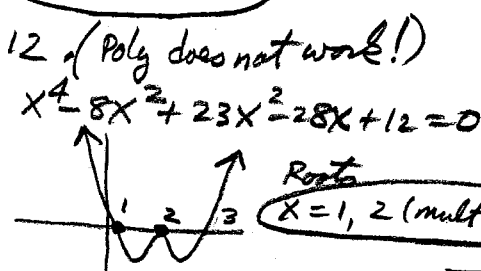 12. (Poly does not work!)
x⁴ - 8x² + 23x² - 28x + 12 = 0
1 2 3
Roots
x = 1, 2 (mult